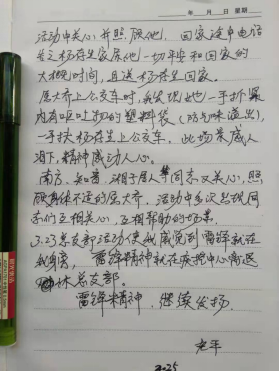 年 月 日 星期
活动中关心并照顾他，回家途中电话
关之杨存生家属他一切平安和回家的
大概时间，且送杨存生回家。
屈大齐上公交车时，我发现她一手抓
内有呕吐物的塑料袋（防气味溢出），
一手扶杨存生上公交车，此场景感人
泪下，精神感动人心。
南方、知青、湘子屈人等同京又关心，照
顾身体不适的屈大齐，活动中多次出现同
志们互相关心，互相帮助的场景。
3.23总支部活动使我感觉到雷锋就在
我身旁，雷锋精神就在疾控中心离退
休总支部。
雷锋精神，继续发扬。
老平
3.25